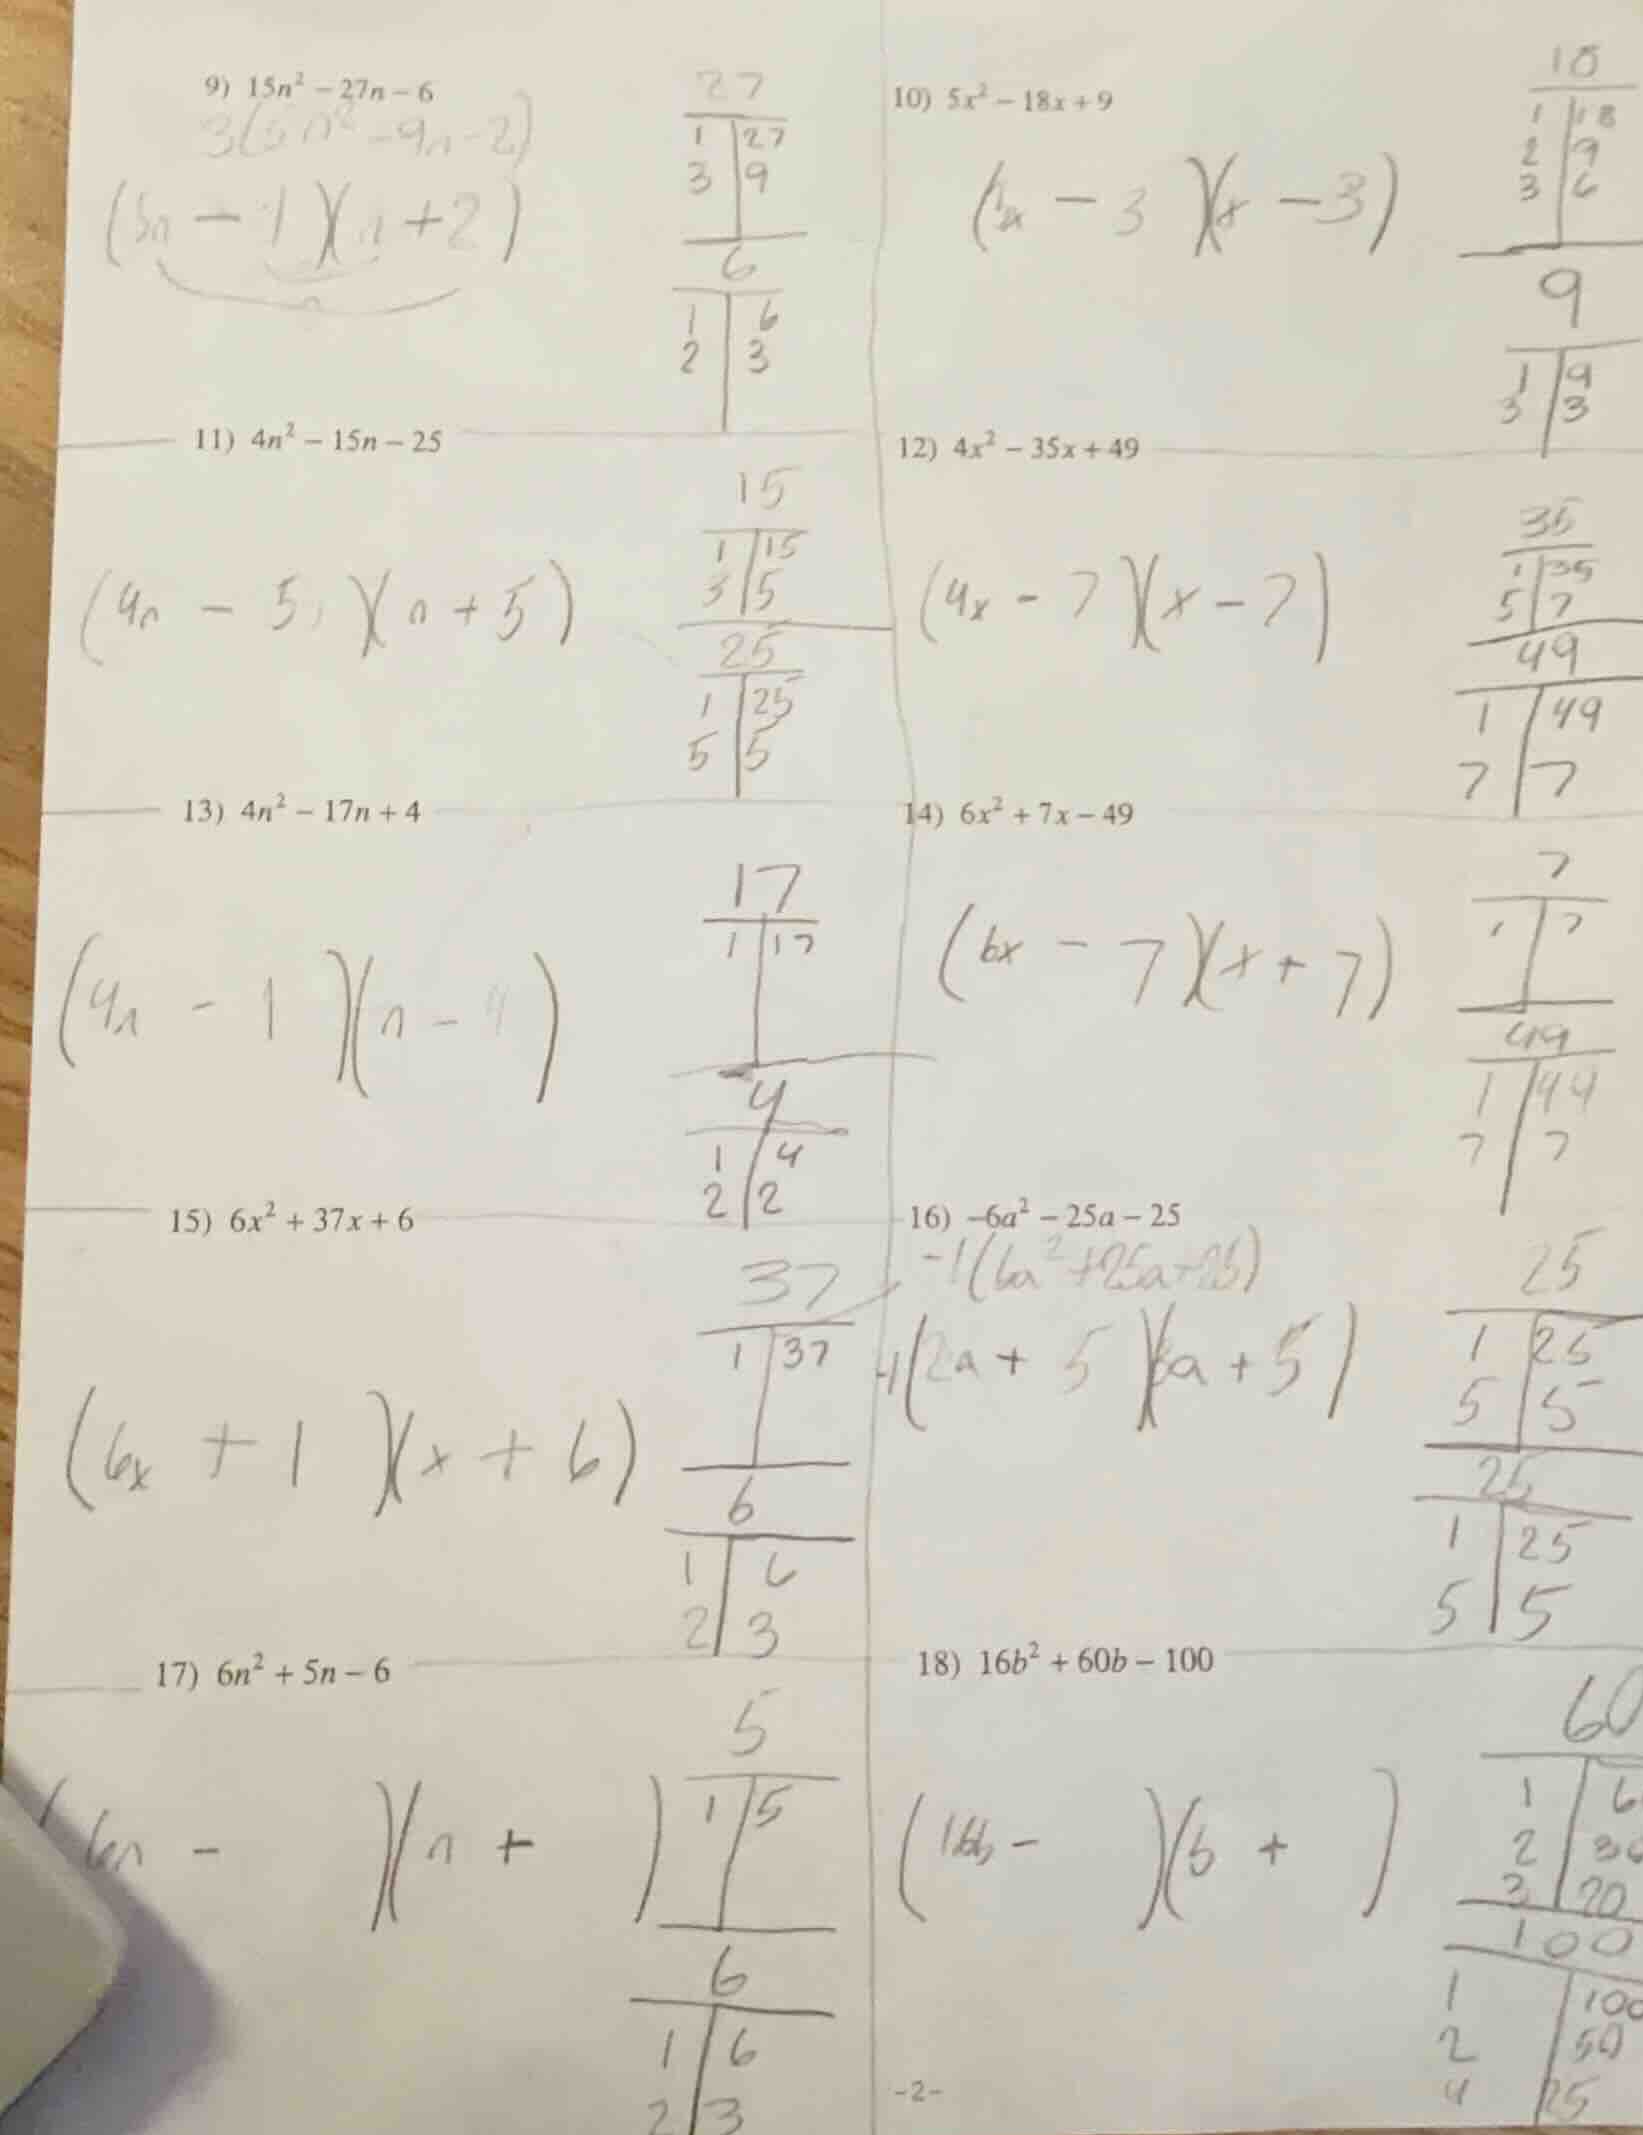 9) 15n² − 27n − 6
3(5n² − 9n − 2)
(5n − 1)(n + 2)
27
1 | 27
3 | 9
6
1 | 6
2 | 3
10) 5x² − 18x + 9
( x − 3)(x − 3)
18
1 | 18
2 | 9
3 | 6
9
1 | 9
3 | 3
11) 4n² − 15n − 25
(4n − 5)(n + 5)
15
1 | 15
3 | 5
25
1 | 25
5 | 5
12) 4x² − 35x + 49
(4x − 7)(x − 7)
35
1 | 35
5 | 7
49
1 | 49
7 | 7
13) 4n² − 17n + 4
(4n − 1)(n − 4)
17
1 | 17
4
1 | 4
2 | 2
14) 6x² + 7x − 49
(6x − 7)(x + 7)
7
1 | 7
49
1 | 44
7 | 7
15) 6x² + 37x + 6
(6x + 1)(x + 6)
37
1 | 37
6
1 | 6
2 | 3
16) −6a² − 25a − 25
−1(6a² + 25a + 25)
−1(2a + 5)(3a + 5)
25
1 | 25
5 | 5
25
1 | 25
5 | 5
17) 6n² + 5n − 6
(6n − )(n + )
5
1 | 5
6
1 | 6
2 | 3
18) 16b² + 60b − 100
(16b − )(b + )
60
1 | 6
2 | 30
3 | 20
100
1 | 100
2 | 50
4 | 25
-2-